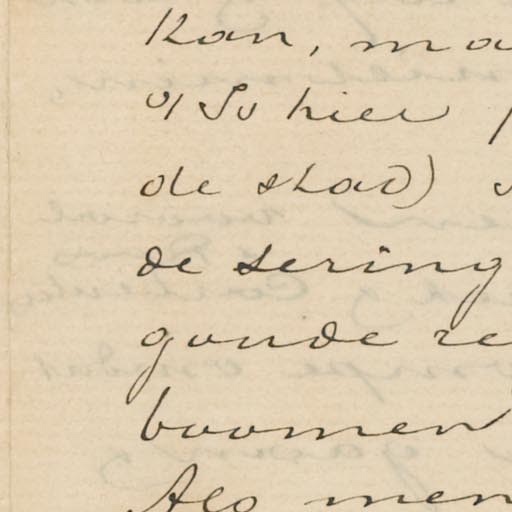 kan, ma
of Su hier
de stad) s
de sering
goude re
boomen
Als men